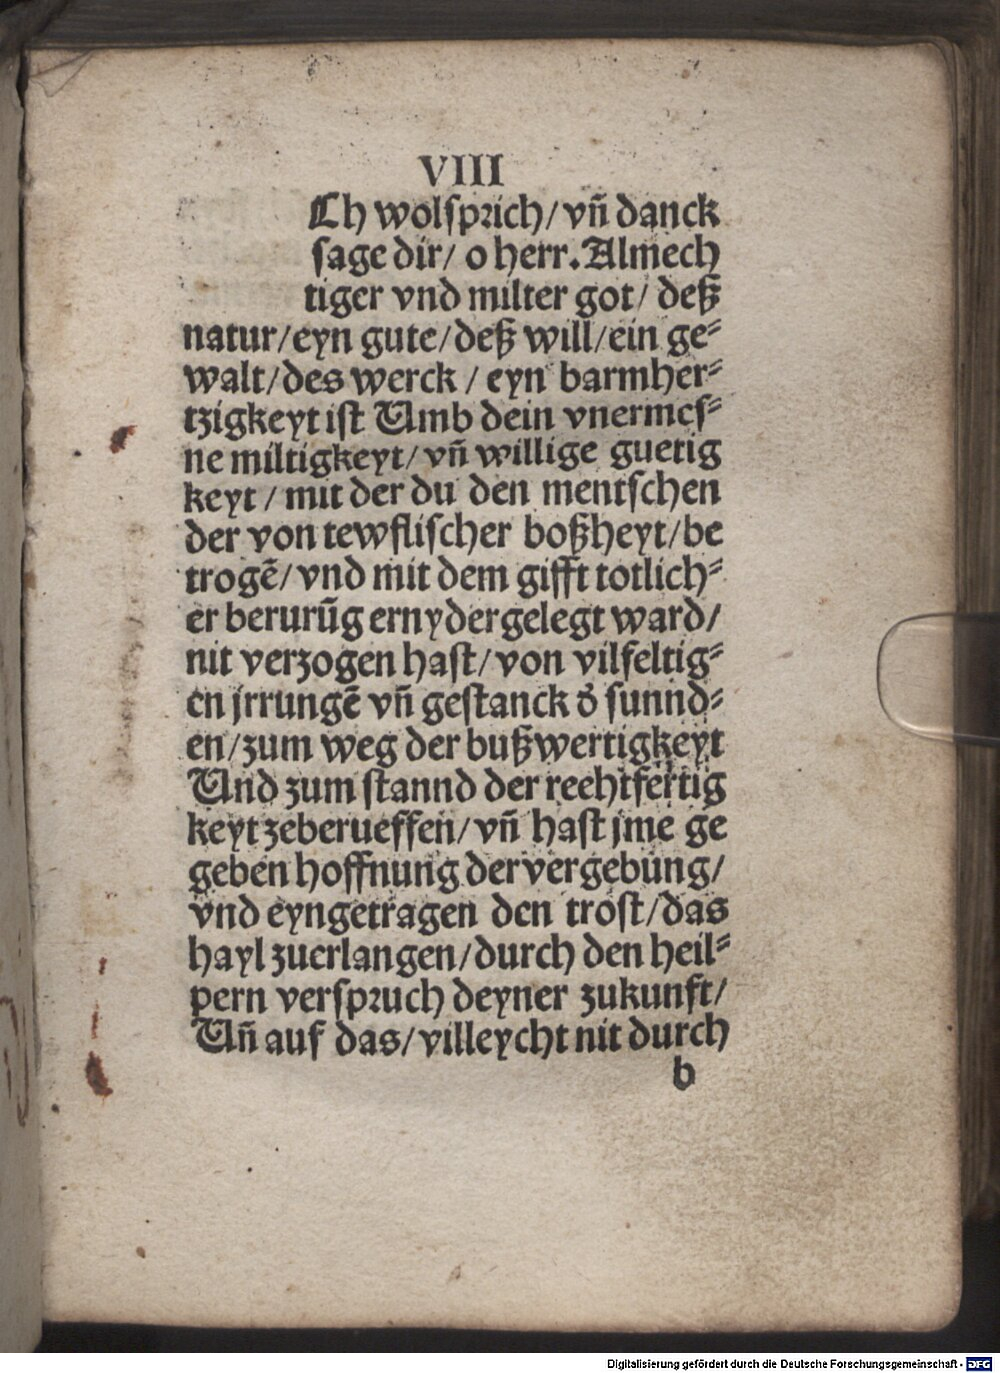 VIII
Ch wolsprich/ vñ danck
sage dir/ o herr. Almech
tiger vnd milter got/ deß
natur/eyn gute/deß will/ein ge⸗
walt/des werck / eyn barmher⸗
tzigkeyt ist Umb dein vnermes⸗
ne miltigkeyt/ vñ willige guetig
keyt / mit der du den mentschen
der von tewflischer boßheyt/be
trogē/ vnd mit dem gifft totlich⸗
er berurūg ernydergelegt ward/
nit verzogen hast/ von vilfeltig⸗
en jrrungē vñ gestanck d̕ sunnd⸗
en/zum weg der bußwertigkeyt
Und zum stannd der reehtfertig
keyt zeberueffen/ vñ hast jme ge
geben hoffnung der vergebung/
vnd eyngetragen den trost/das
hayl zuerlangen/durch den heil⸗
pern verspruch deyner zukunft/
Uñ auf das/villeycht nit durch
b
Digitalisierung gefördert durch die Deutsche Forschungsgemeinschaft - DFG